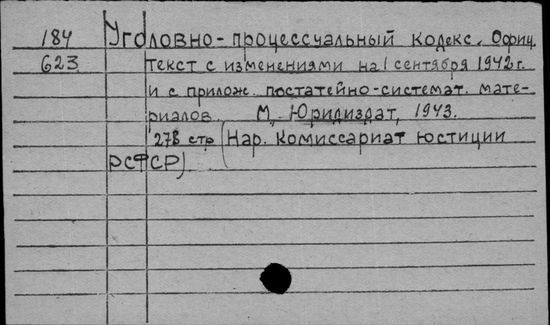 184 Уголовно-процессуальный кодекс. Офиц.
623 текст с изменениями на 1 сентября 1942 г.
и с прилож. постатейно-системат. мате-
риалов. М., Юридиздат, 1943.
278 стр (Нар. Комиссариат юстиции
РСФСР).